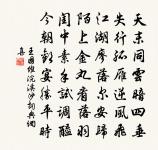 天末同雲暗四垂
失行孤雁逆風飛
江湖寥落爾安歸
陌上金丸看落羽
閨中素手試調醯
今朝歡宴勝平時
王國維浣溪沙詞典網